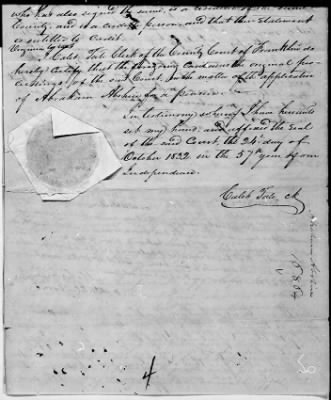 who has also signed the same, is a resident of the said
County, and is a credible person and that their statement
is entitled to credit.
Virginia to wit
I Caleb Tate Clerk of the County Court of Franklin do
hereby Certify that the foregoing Contains the original pro-
ceedings of the said Court, in the matter of the application
of Abraham Abshire for a pension.
In testimony whereof I have hereunto
set my hand and affixed the Seal
of the said Court, the 24 day of
October 1832 in the 57th year of our
Independence.
Caleb Tate, Ck
Abraham Abshire
4